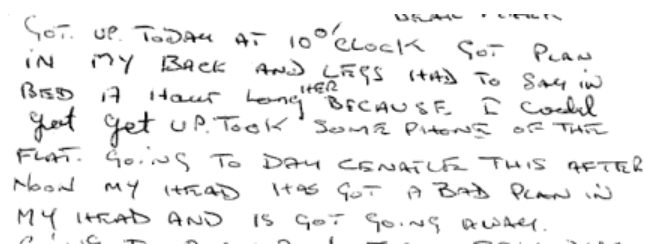 GOT. UP. TODAY AT 10 O'CLOCK GOT PLAN
IN MY BACK AND LEGS HAD TO SAY IN
BED A HOUR LONGHER BECAUSE I COULD
get get UP. TOOK SOME PHONE OF THE
FLAT. GOING TO DAY CENATLE THIS AFTER
NOON MY HEAD HAS GOT A BAD PLAN IN
MY HEAD AND IS GOT GOING AWAY.